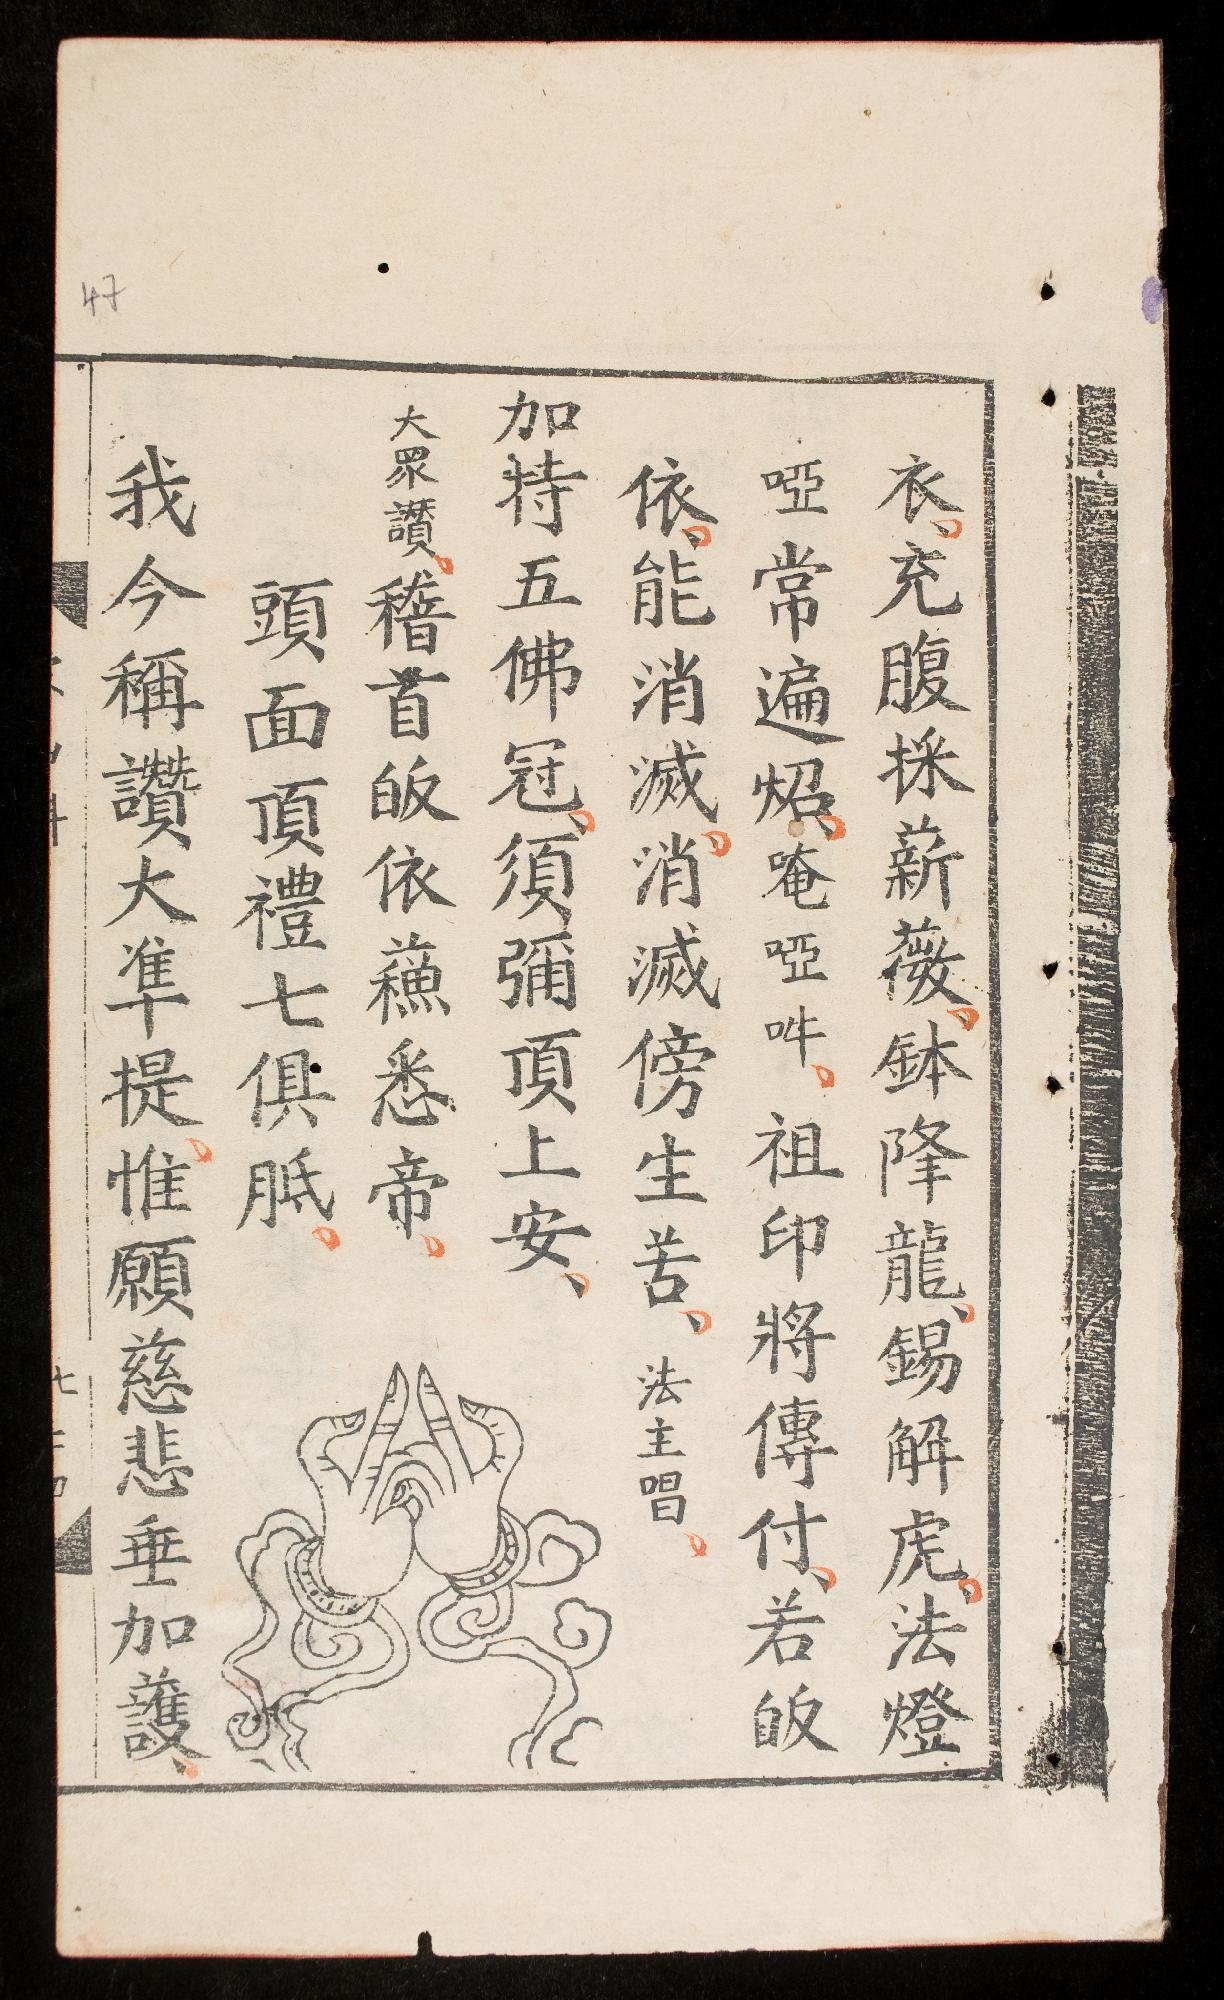 衣、充腹採薪薇、鉢降龍、錫解虎、法燈
啞常遍炤、唵啞吽。祖印將傳付、若皈
依、能消滅。消滅傍生苦、法主唱。
加持五佛冠、須彌頂上安、
大眾讚。稽首皈依蘓悉帝。
頭面頂禮七俱胝。
我今稱讚大準提。惟願慈悲垂加護、
47